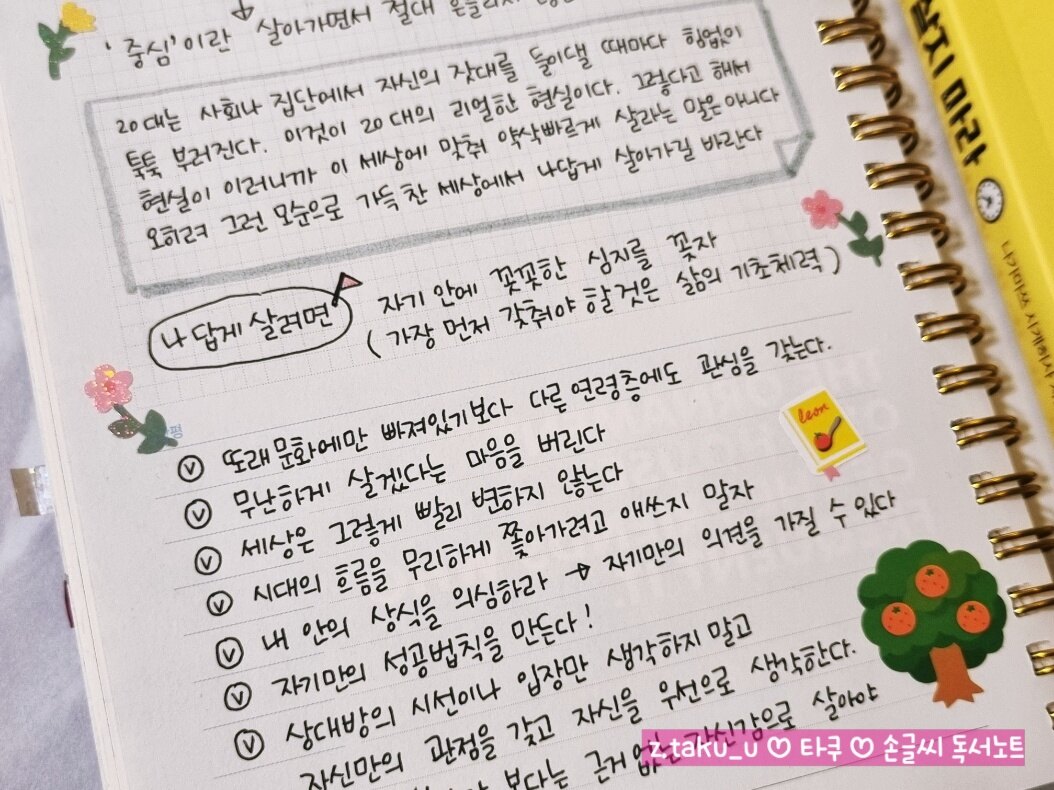 '중심'이란 살아가면서 절대 흔들리지
20대는 사회나 집단에서 자신의 잣대를 들이댈 때마다 힘없이
툭툭 부러진다. 이것이 20대의 리얼한 현실이다. 그렇다고 해서
현실이 이러니까 이 세상에 맞춰 약삭빠르게 살라는 말은 아니다
오히려 그런 모순으로 가득 찬 세상에서 나답게 살아가길 바란다
나답게 살려면
자기 안에 꼿꼿한 심지를 꽂자
(가장 먼저 갖춰야 할 것은 삶의 기초체력)
평
ⓥ 또래문화에만 빠져있기보다 다른 연령층에도 관심을 갖는다.
ⓥ 무난하게 살겠다는 마음을 버린다
ⓥ 세상은 그렇게 빨리 변하지 않는다
ⓥ 시대의 흐름을 무리하게 쫓아가려고 애쓰지 말자
ⓥ 내 안의 상식을 의심하라 → 자기만의 의견을 가질 수 있다
ⓥ 자기만의 성공법칙을 만든다!
ⓥ 상대방의 시선이나 입장만 생각하지 말고
자신만의 관점을 갖고 자신을 우선으로 생각한다.
보다는 근거 없는 자신감으로 살아야
leon
지 마라
z.taku_u ♡ 타쿠 ♡ 손글씨 독서노트